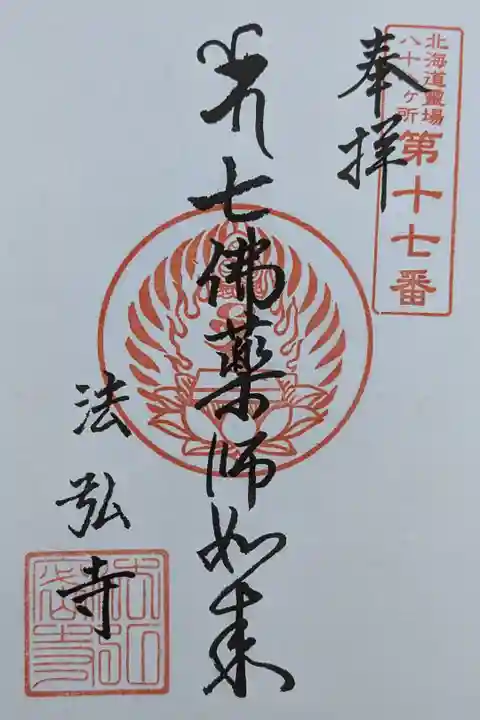 北海道靈場
八十八ケ所
第十七番
奉拝
七佛薬師如来
法弘寺